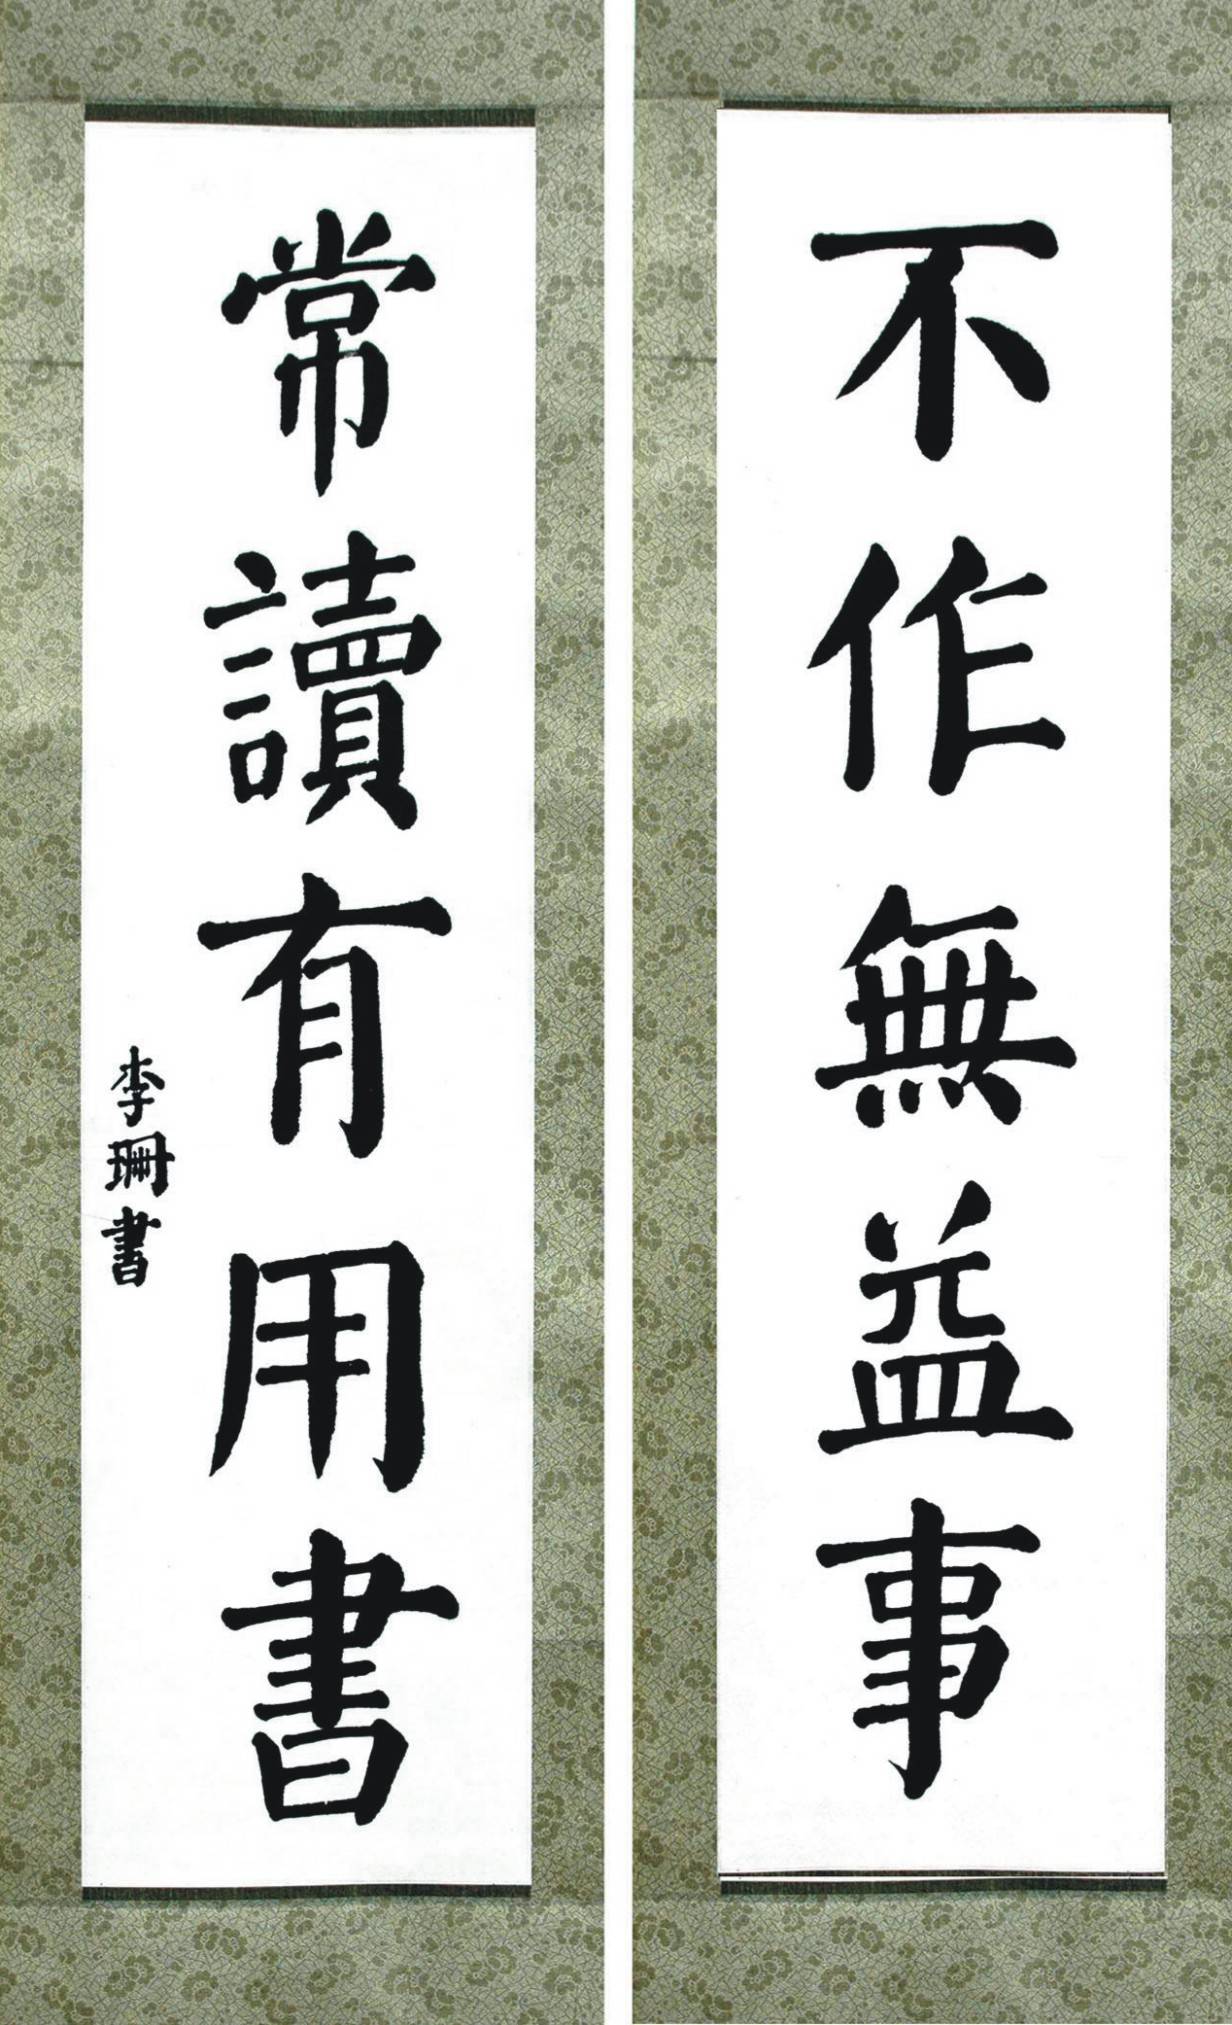 不作無益事
常讀有用書
李珊書